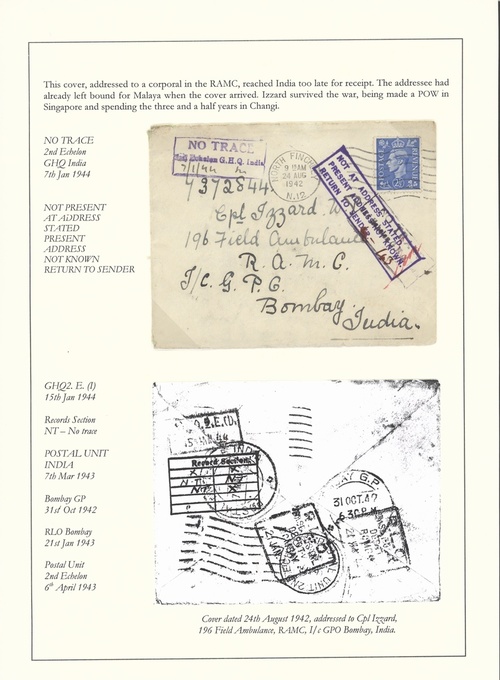 This cover, addressed to a corporal in the RAMC, reached India too late for receipt. The addressee had
already left bound for Malaya when the cover arrived. Izzard survived the war, being made a POW in
Singapore and spending the three and a half years in Changi.
NO TRACE
2nd Echelon
GHQ India
7th Jan 1944
NOT PRESENT
AT ADDRESS
STATED
PRESENT
ADDRESS
NOT KNOWN
RETURN TO SENDER
NO TRACE
2nd Echelon G.H.Q. India
7/1/44
NORTH FINCHLEY
9 15AM
24 AUG
1942
N.12
NOT AT ADDRESS STATED
PRESENT ADDRESS NOT KNOWN
RETURN TO SENDER
7372844
Cpl Izzard. W
196 Field Ambulance
R. A. M. C.
I/c. G. P. O.
Bombay.
India.
GHQ2. E. (I)
15th Jan 1944
Records Section
NT – No trace
POSTAL UNIT
INDIA
7th Mar 1943
Bombay GP
31st Oct 1942
RLO Bombay
21st Jan 1943
Postal Unit
2nd Echelon
6th April 1943
Record Section
NT
BAY G.P.
31 OCT.42
6.30PM
UNIT 2
Cover dated 24th August 1942, addressed to Cpl Izzard,
196 Field Ambulance, RAMC, I/c GPO Bombay, India.